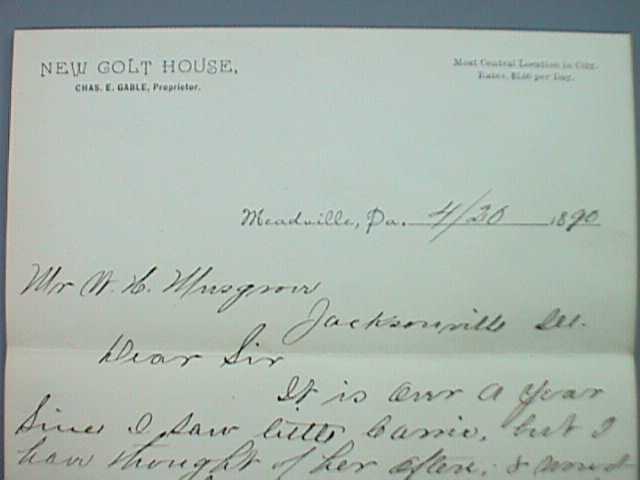 NEW COLT HOUSE,
CHAS. E. GABLE, Proprietor.
Most Central Location in City.
Rates, per Day.
Meadville, Pa. 4/20 1890
Mr W. H. Musgrove
Jacksonville Ill.
Dear Sir
It is over a year
Since I saw little Carrie, but I
have thought of her often, &